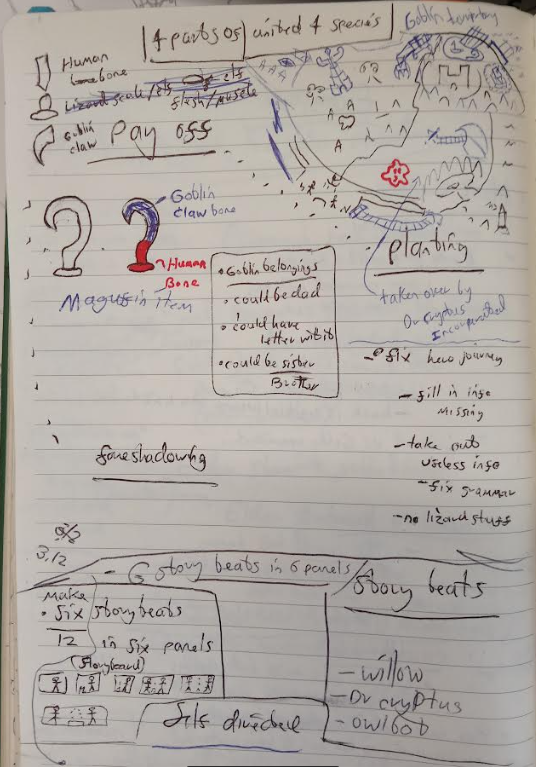 4 parts of united 4 species
Goblin territory
Human
bone
Lizard scale/
flesh/muscle
Goblin
claw
Pay off
Goblin
claw bone
Human
Bone
Magus in item
• Goblin belongings
• could be dad
• could have
letter with it
• could be sister
Brother
Planting
taken over by
Dr cryptus
Incorporated
- fix hero journey
- fill in info
missing
- take out
useless info
- fix grammar
- no lizard stuff
foreshadowing
3/12
- 6 story beats in 6 panels
Make
• six story beats
12 in six panels
(storyboard)
story beats
- willow
- Dr cryptus
- owlbot
directed